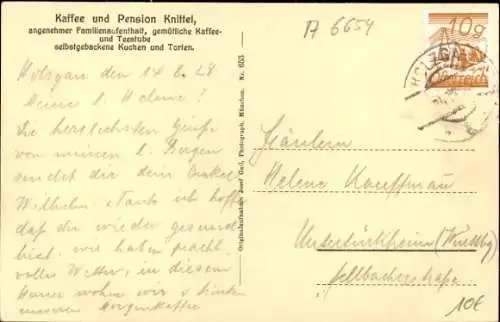 Kaffee und Pension Knittel,
angenehmer Familienaufenthalt, gemütliche Kaffee-
und Teestube
selbstgebackene Kuchen und Torten.
A 6654
10g
Österreich
HOLZGAU
Holzgau den 14 8. 28
Meine l. Helene!
Die herzlichsten Grüße
von meinen l. Bergen
sendet dir dein Onkel
Wilhelm. Tante ich hoffe
daß du wieder gesund
bist. wir haben pracht
volles Wetter, in diesem
Hause wohnen wir & trinken
unseren Morgenkaffee
Originalaufnahme Josef Gail, Photograph, München. Nr. 653
Fräulein
Helene Kauffmann
Untertürkheim (Württbg)
Fellbacherstraße
10€